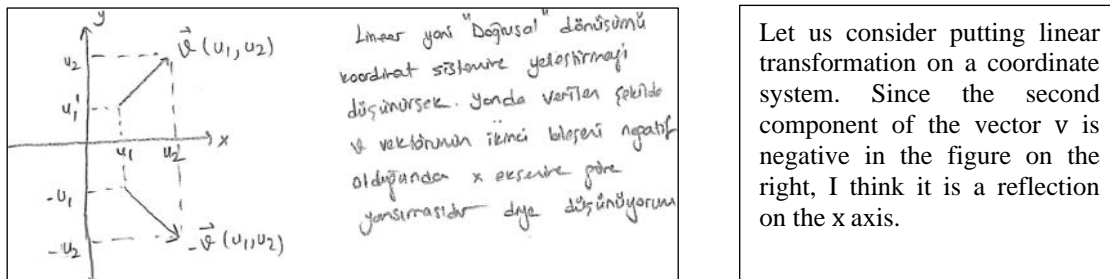 y
u₂
v⃗ (u₁, u₂)
u₁'
x
u₁
u₂
-u₁
-u₂
-v⃗ (u₁, u₂)
Linear yani "Doğrusal" dönüşümü
koordinat sistemine yerleştirmeyi
düşünürsek. Yanda verilen şekilde
v vektörünün ikinci bileşeni negatif
olduğundan x eksenine göre
yansımasıdır diye düşünüyorum
Let us consider putting linear
transformation on a coordinate
system. Since the second
component of the vector v is
negative in the figure on the
right, I think it is a reflection
on the x axis.